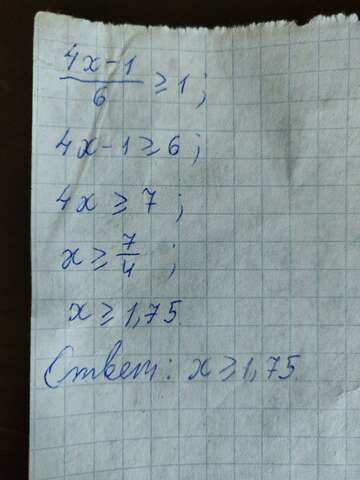 (4x-1)/6 ≥ 1;
4x-1 ≥ 6;
4x ≥ 7;
x ≥ 7/4;
x ≥ 1,75
Ответ: x ≥ 1,75